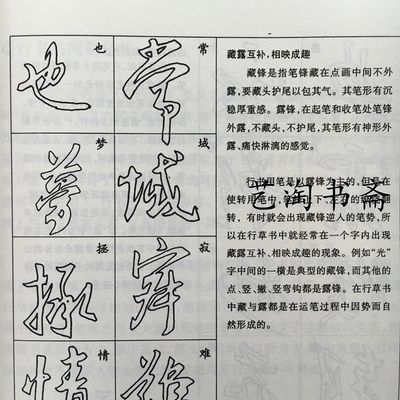 也 常
也 常
梦 域
夢 域
拯 寂
拯 寂
情 难
情 难
藏露互补,相映成趣
藏锋是指笔锋藏在点画中间不外
露,要藏头护尾以包其气。其笔形有沉
稳厚重感。露锋,在起笔和收笔处笔锋
外露,不藏头、不护尾,其笔形有神形外
露、痛快淋漓的感觉。
行书用笔是以露锋为主的,但是在
使转用笔中,笔锋上下、左右的翻
转,有时就会出现藏锋逆入的笔势,所
以在行草书中就经常在一个字内出现
藏露互补、相映成趣的现象。例如“光”
字中间的一横是典型的藏锋,而其他的
点、竖、撇、竖弯钩都是露锋。在行草书
中藏与露都是在运笔过程中因势而自
然形成的。
艺淘书斋